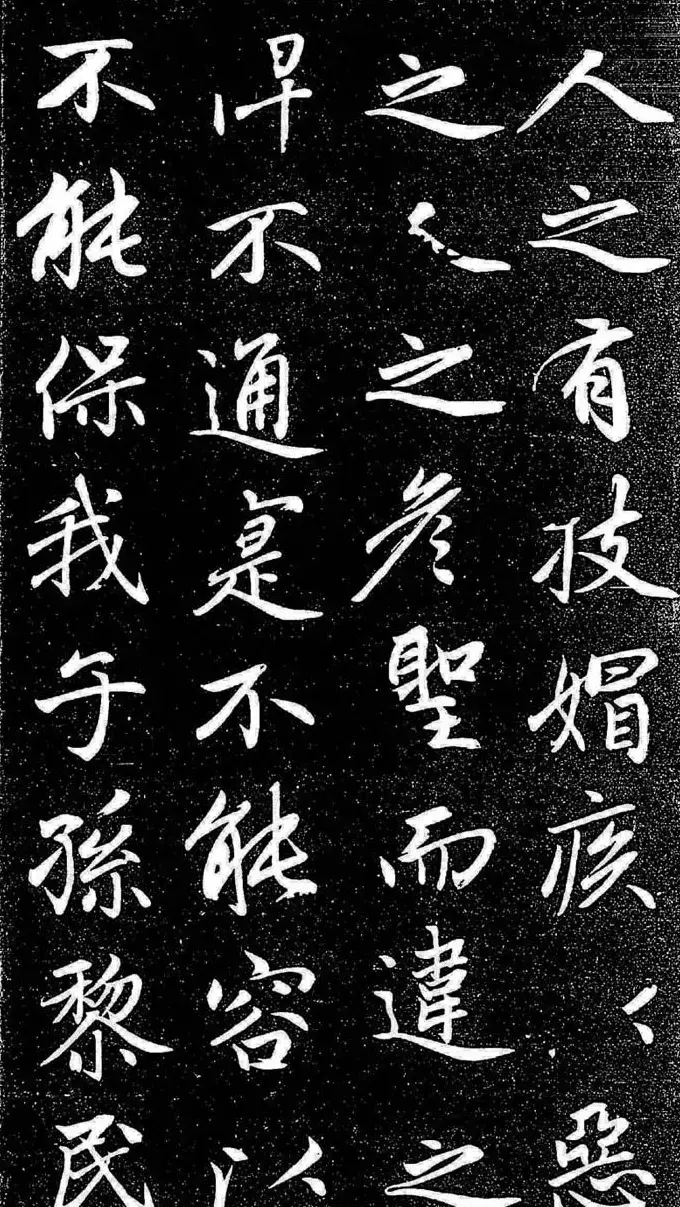 人之有技媢疾以惡
之人之彥聖而違之
俾不通寔不能容以
不能保我子孫黎民